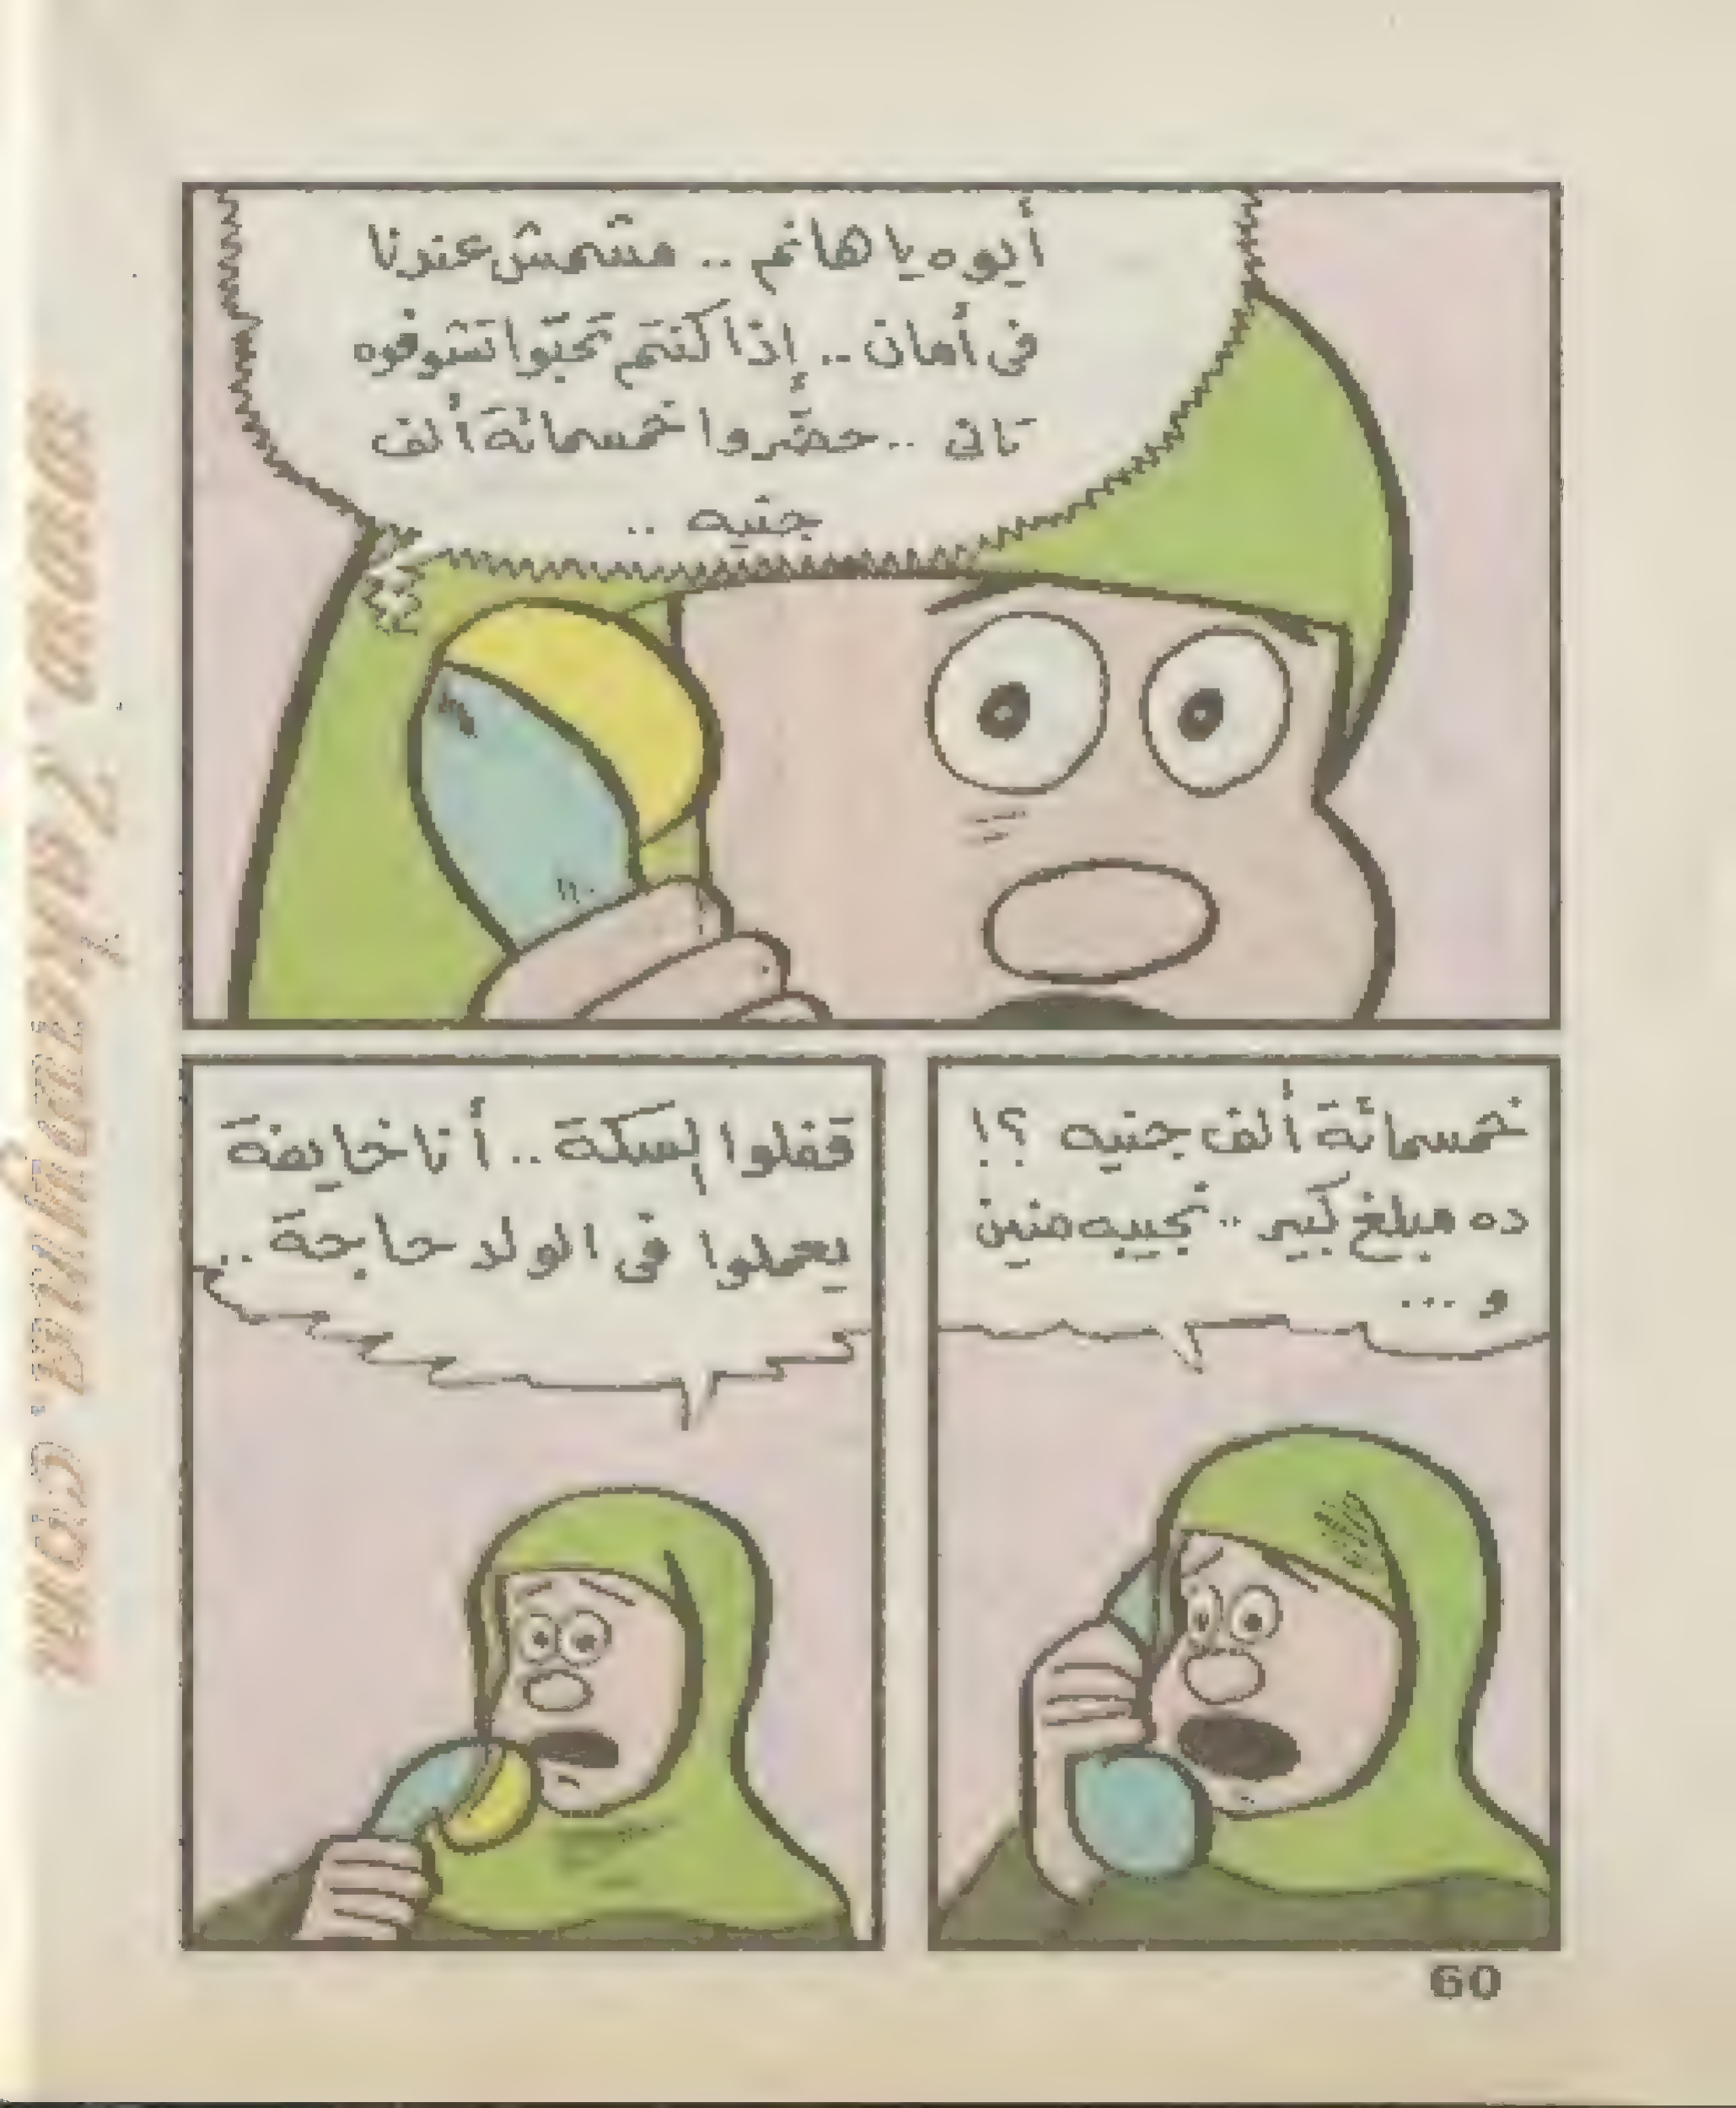 أيوه يا هانم .. مشمش عندنا
فى أمان .. إذا كنتم تحبّوا تشوفوه
تانى .. حضّروا خمسمائة ألف
جنيه ..
خمسمائة ألف جنيه ؟!
ده مبلغ كبير .. نجيبه منين
و ...
قفلوا السكة .. أنا خايفة
يعملوا فى الولد حاجة ..
60